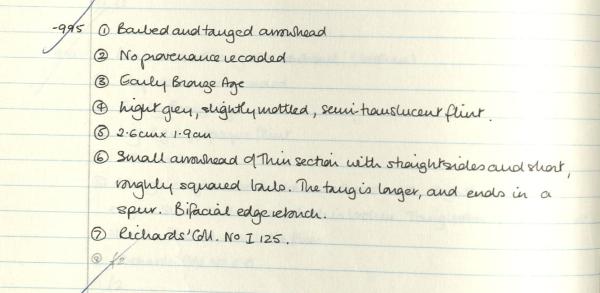 -995 ① Barbed and tanged arrowhead
② No provenance recorded
③ Early Bronze Age
④ Light grey, slightly mottled, semi translucent flint.
⑤ 2.6cm x 1.9cm
⑥ Small arrowhead of thin section with straight sides and short,
roughly squared barbs. The tang is longer, and ends in a
spur. Bifacial edge retouch.
⑦ Richards' Coll. No I 125.
⑧